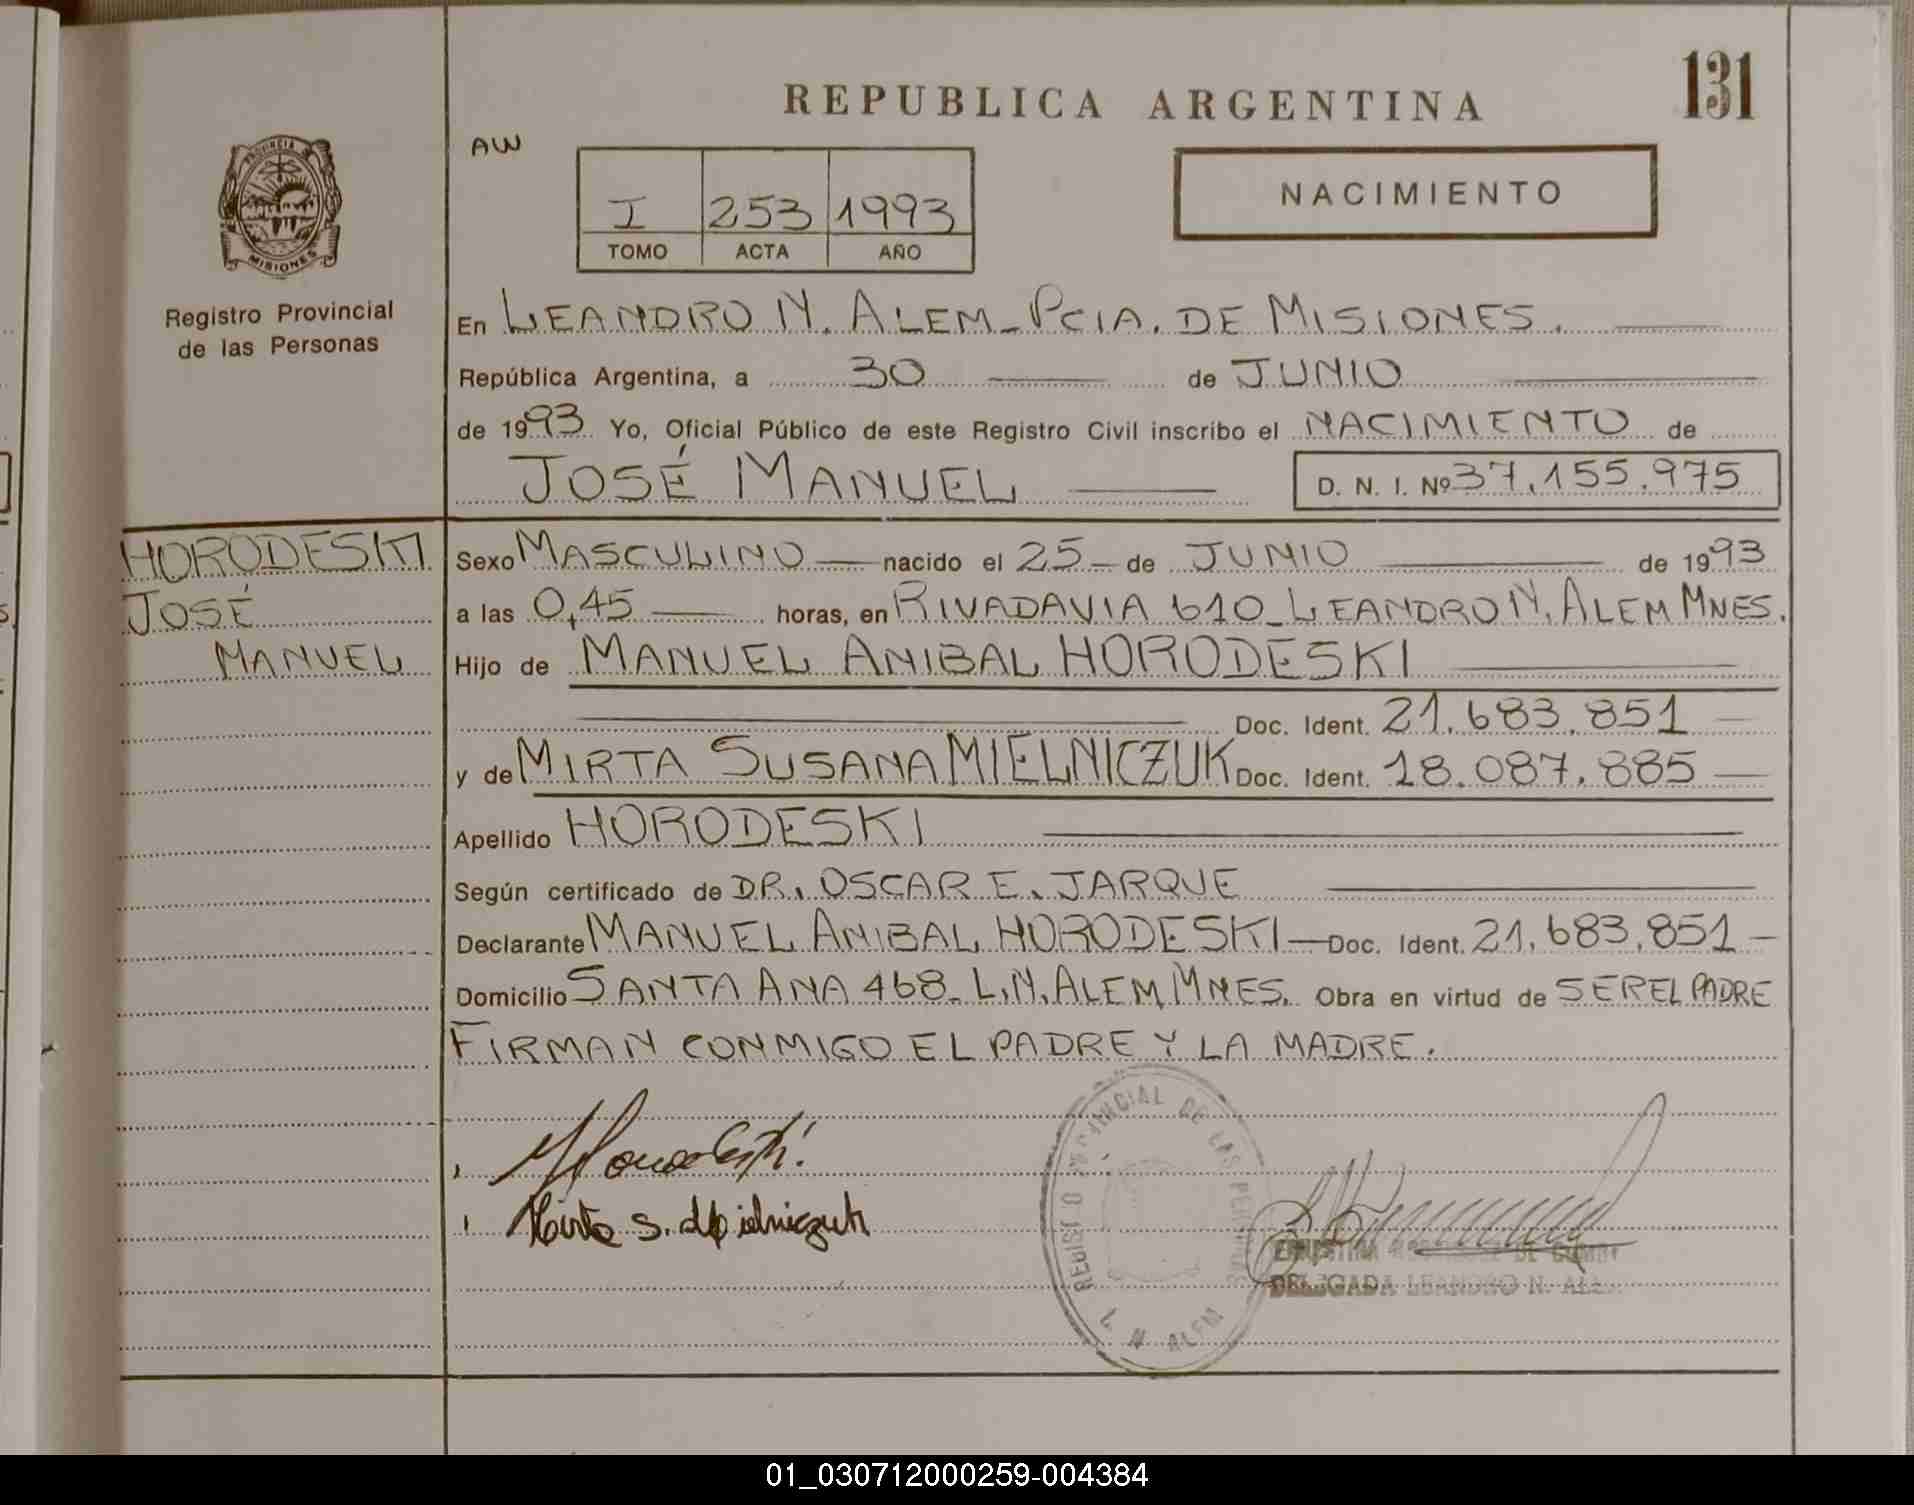 131
REPUBLICA ARGENTINA
AW
PROVINCIA
MISIONES
I 253 1993
TOMO ACTA AÑO
NACIMIENTO
Registro Provincial
de las Personas
En LEANDRO N. ALEM - PCIA. DE MISIONES.
República Argentina, a 30 de JUNIO
de 1993 Yo, Oficial Público de este Registro Civil inscribo el NACIMIENTO de
JOSÉ MANUEL D. N. I. Nº 37.155.975
HORODESKI
JOSÉ
MANUEL
Sexo MASCULINO nacido el 25 de JUNIO de 1993
a las 0,45 horas, en RIVADAVIA 610 - LEANDRO N. ALEM MNES.
Hijo de MANUEL ANIBAL HORODESKI
Doc. Ident. 21.683.851
y de MIRTA SUSANA MIELNICZUK Doc. Ident. 18.087.885
Apellido HORODESKI
Según certificado de DR. OSCAR E. JARQUE
Declarante MANUEL ANIBAL HORODESKI Doc. Ident. 21.683.851
Domicilio SANTA ANA 468 - L.N. ALEM, MNES. Obra en virtud de SER EL PADRE
FIRMAN CONMIGO EL PADRE Y LA MADRE.
Mirta S. Mielniczuk
REGISTRO PROVINCIAL DE LAS PERSONAS
L. N. ALEM
DELEGADA LEANDRO N. ALEM
01_030712000259-004384